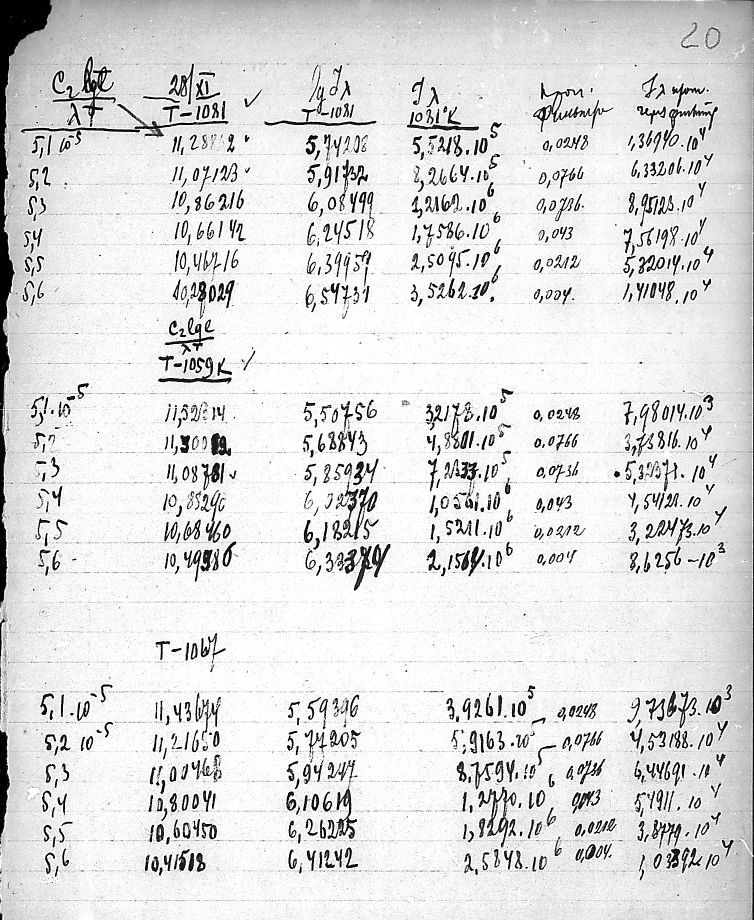 20
C₂ lge / λT 28/XI T-1081 ✓ lg Jλ T-1081 Jλ 1081°K проп. фильтра Jλ проп. через фильтр
5,1 10⁻⁵ 11,28862 5,74208 5,5218·10⁵ 0,0248 1,36940·10⁴
5,2 11,07123 5,91732 8,2664·10⁵ 0,0766 6,33206·10⁴
5,3 10,86216 6,08499 1,2162·10⁶ 0,0736 8,95123·10⁴
5,4 10,66142 6,24518 1,7586·10⁶ 0,043 7,56198·10⁴
5,5 10,46716 6,39957 2,5095·10⁶ 0,0212 5,32014·10⁴
5,6 10,28029 6,54731 3,5262·10⁶ 0,004 1,41048·10⁴
C₂ lge / λT
T-1059K ✓
5,1·10⁻⁵ 11,52314 5,50756 3,2178·10⁵ 0,0248 7,98014·10³
5,2 5,68843 4,8801·10⁵ 0,0766 3,73816·10⁴
5,3 11,08781 5,85934 7,2333·10⁵ 0,0736 5,32371·10⁴
5,4 10,88290 6,02370 1,0561·10⁶ 0,043 4,54123·10⁴
5,5 10,68460 6,18215 1,5211·10⁶ 0,0212 3,22473·10⁴
5,6 10,49386 0,004 8,6256-10³
T-1067
5,1·10⁻⁵ 11,43674 5,59396 3,9261·10⁵ 0,0248 9,73673·10³
5,2 10⁻⁵ 11,21650 5,77205 5,9163·10⁵ 0,0766 4,53188·10⁴
5,3 11,00468 5,94247 8,7594·10⁵ 0,0736 6,44691·10⁴
5,4 10,80041 6,10619 1,2770·10⁶ 0,043 5,4911·10⁴
5,5 10,60450 6,26225 1,8292·10⁶ 0,0212 3,8779·10⁴
5,6 10,41518 6,41242 2,5848·10⁶ 0,004 1,03392·10⁴